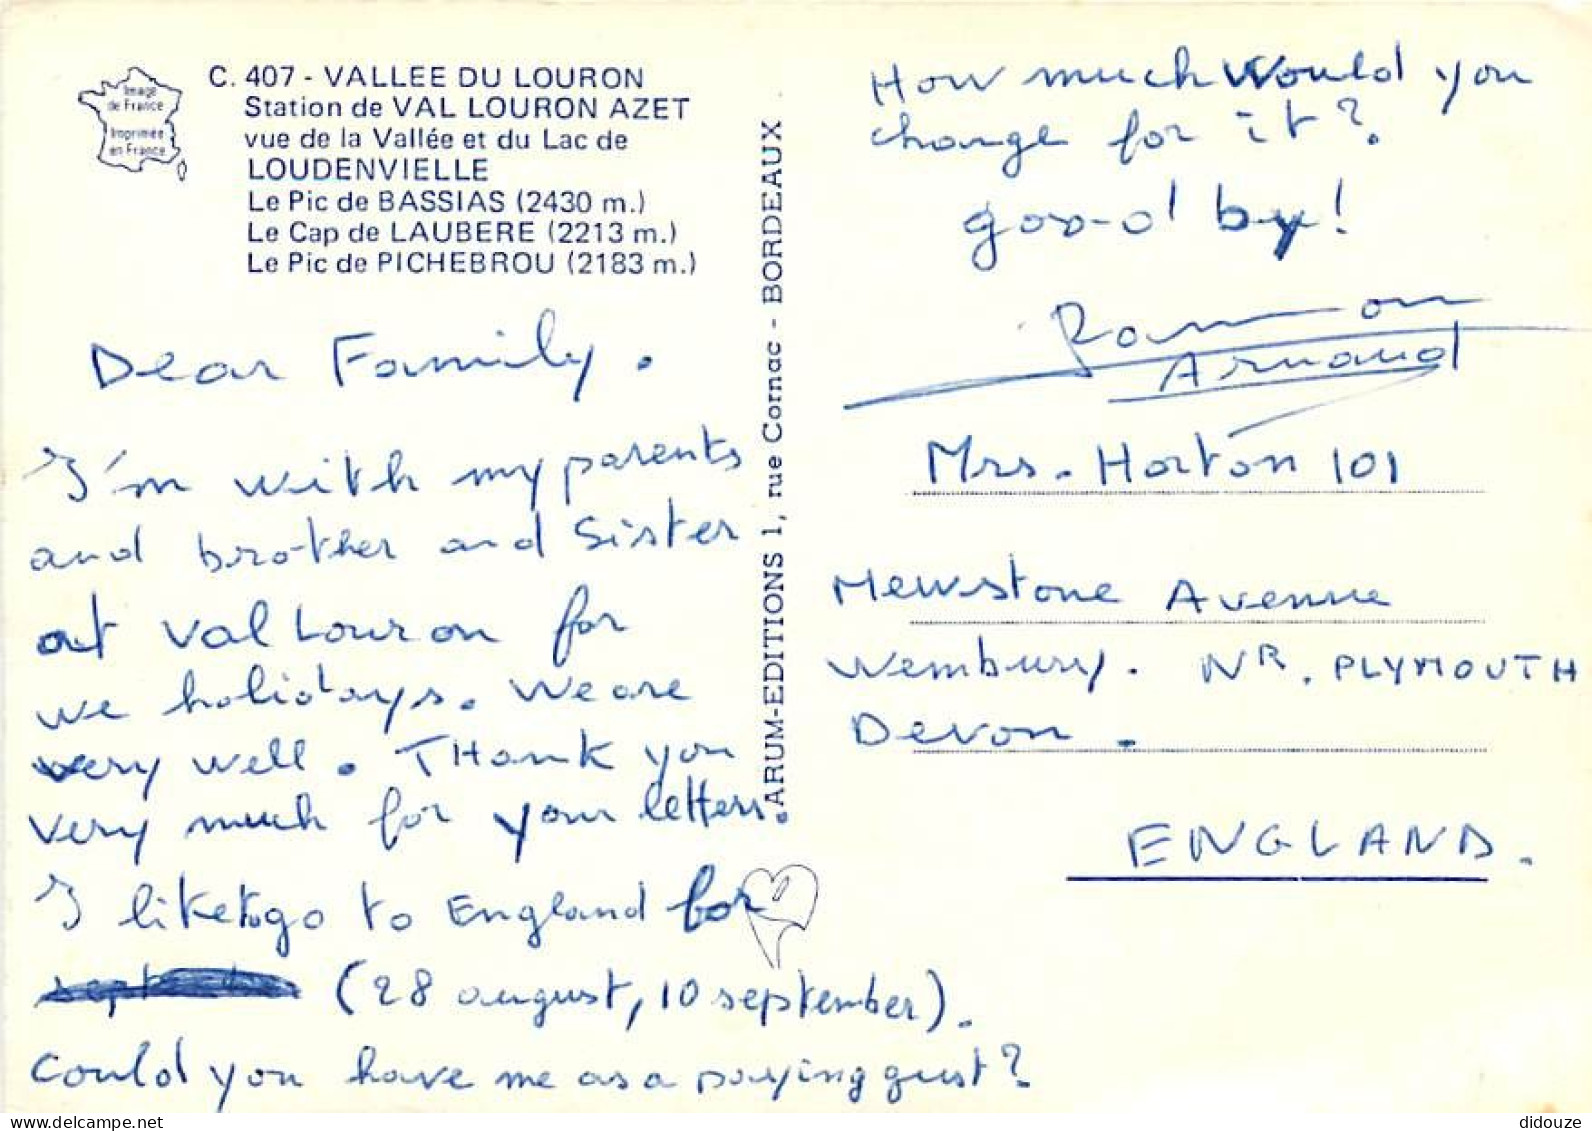 Image
de France
Imprimée
en France
C. 407 - VALLEE DU LOURON
Station de VAL LOURON AZET
vue de la Vallée et du Lac de
LOUDENVIELLE
Le Pic de BASSIAS (2430 m.)
Le Cap de LAUBERE (2213 m.)
Le Pic de PICHEBROU (2183 m.)
Dear Family.
I'm with my parents
and brother and Sister
at Val Louron for
we holidays. We are
very well. THank you
very much for your letters.
I like to go to England for
(28 august, 10 september).
Could you have me as a paying gust?
ARUM-EDITIONS 1, rue Cornac - BORDEAUX
How much Would you
change for it?
good by!
Ramon
Arnaud
Mrs. Horton 101
Mewstone Avenue
Wembury. NR. PLYMOUTH
Devon.
ENGLAND.
didouze